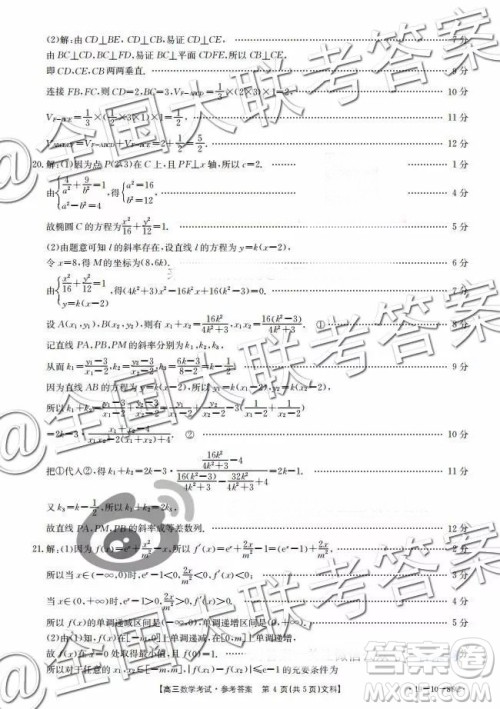 (2)解:由 CD⊥BE, CD⊥DF,易证 CD⊥CE,
由 BC⊥CD, BC⊥FD,易证 BC⊥平面 CDFE,所以 CB⊥CE,
即 CD,CE,CB 两两垂直. 9 分
连接 FB,FC,则 CD=2,BC=3, 10 分
11 分
12 分
20.解:(1)因为点 P(2,3)在 C 上,且 PF⊥x 轴,所以 c=2. 1 分
由{4/a²+9/b²=1, a²-b²=4,得{a²=16, b²=12, 4 分
故椭圆 C 的方程为 x²/16+y²/12=1. 5 分
(2)由题意可知 l 的斜率存在,设直线 l 的方程为 y=k(x-2),
令 x=8,得 M 的坐标为(8,6k). 6 分
由{x²/16+y²/12=1, y=k(x-2),得(4k²+3)x²-16k²x+16(k²-3)=0. 7 分
设 A(x₁,y₁),B(x₂,y₂),则有 x₁+x₂=16k²/(4k²+3),x₁x₂=16(k²-3)/(4k²+3). ① 8 分
记直线 PA,PB,PM 的斜率分别为 k₁,k₂,k₃,
从而 k₁=(y₁-3)/(x₁-2),k₂=(y₂-3)/(x₂-2),k₃=(6k-3)/(8-2)=k-1/2. 9 分
因为直线 AB 的方程为 y=k(x-2),所以 y₁=k(x₁-2),y₂=k(x₂-2),
所以 k₁+k₂=(y₁-3)/(x₁-2)+(y₂-3)/(x₂-2)=y₁/(x₁-2)+y₂/(x₂-2)-3(1/(x₁-2)+1/(x₂-2))
=2k-3·(x₁+x₂-4)/(x₁x₂-2(x₁+x₂)+4). ② 10 分
把①代入②,得 k₁+k₂=2k-3·(16k²/(4k²+3)-4)/(16(k²-3)/(4k²+3)-32k²/(4k²+3)+4)=2k-1. 11 分
又 k₃=k-1/2,所以 k₁+k₂=2k₃,
故直线 PA,PM,PB 的斜率成等差数列. 12 分
21.解:(1)因为 f(x)=eˣ+x²/m²-x,所以 f′(x)=eˣ+2x/m²-1=(eˣ-1)+2x/m². 2 分
所以当 x∈(-∞,0)时,eˣ-1<0,2x/m²<0,f′(x)<0; 3 分
当 x∈(0,+∞)时,eˣ-1>0,2x/m²>0,f′(x)>0. 4 分
所以 f(x)的单调递减区间为(-∞,0),单调递增区间 5 分
(2)由(1)知,f(x)在[-m,0]上单调递减,在[0,m]上单调递增,
故 f(x)在 x=0 处取得最小值.
所以对于任意的 x₁,x₂∈[-m,m],|f(x₁)-f(x₂)|≤e-1 的充要条件为
【高三数学考试·参考答案 第 4 页(共 5 页)文科】
@全国大联考答案
@全国大联考答案
@全国大联考答案